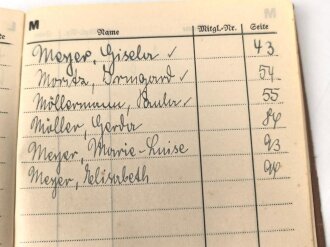 M
Name Mitgl.-Nr. Seite
Meyer, Gisela ✓ 43
Moritz, Irmgard ✓ 54
Möllermann, Paula ✓ 55
Müller, Gerda 86
Meyer, Marie-Luise 93
Meyer, Elisabeth 90